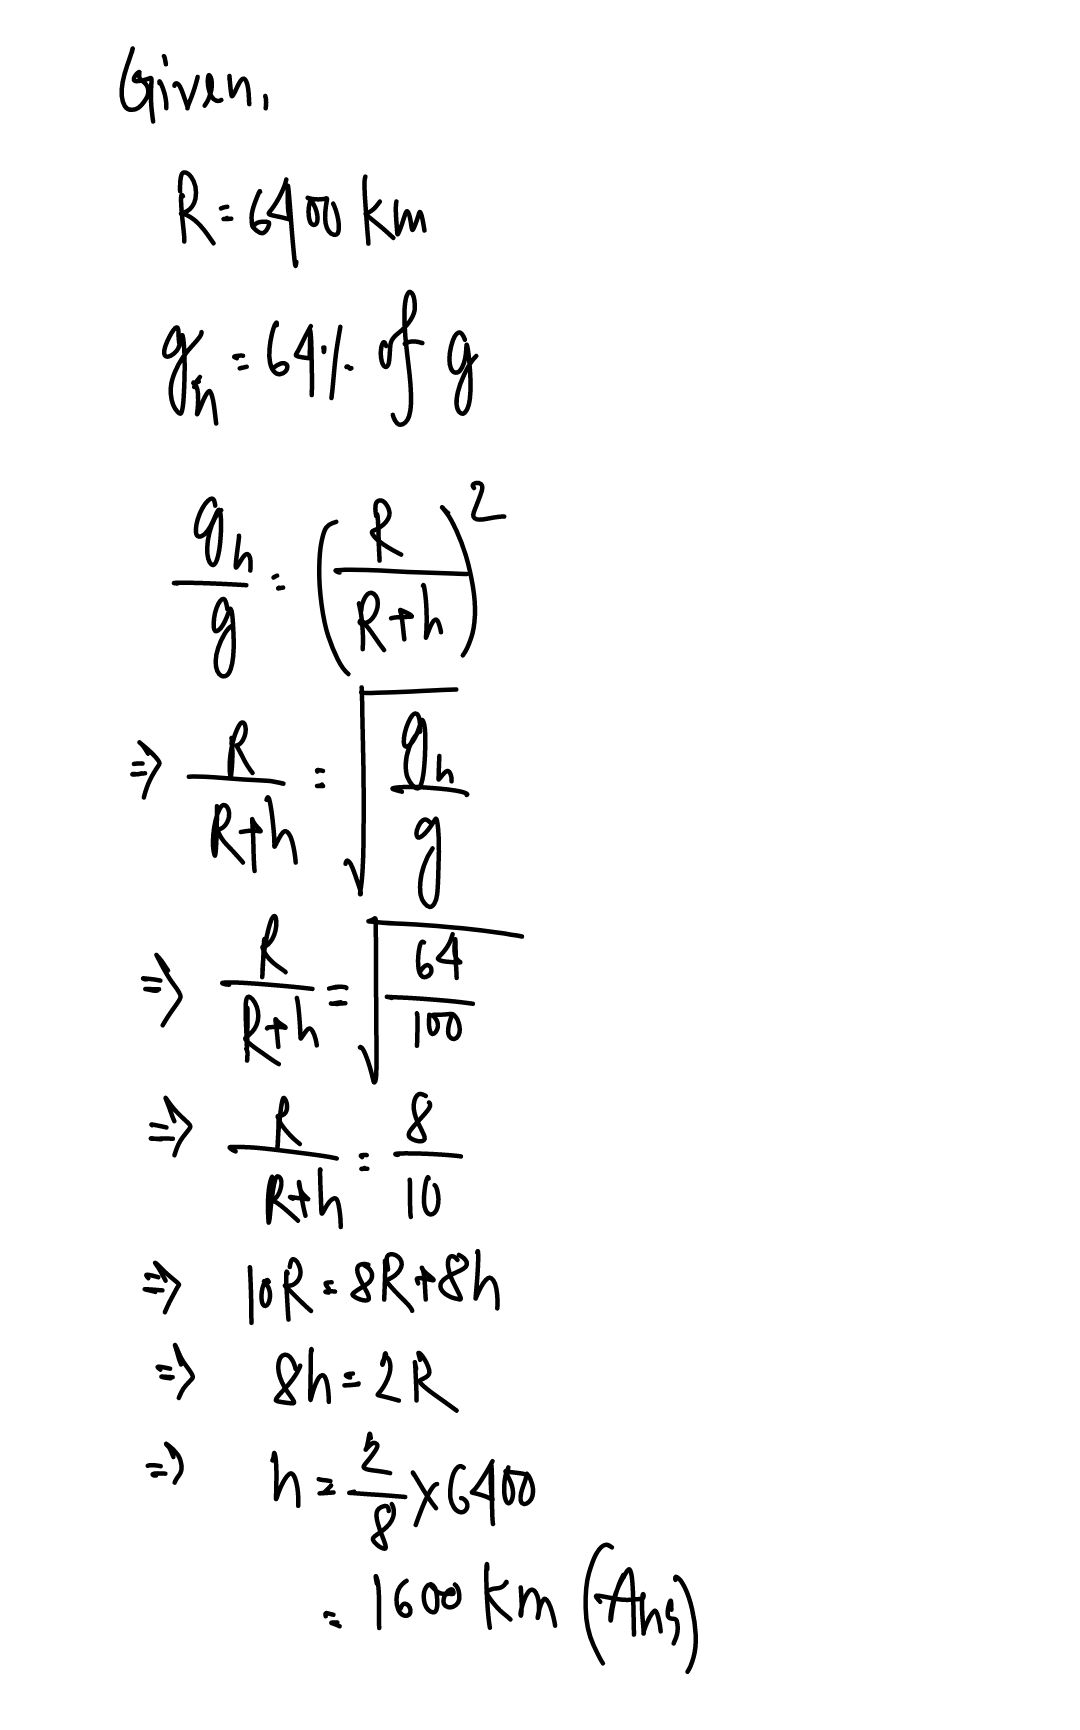 Given,
R = 6400 km
g_h = 64% of g
g_h/g = (R/(R+h))^2
⇒ R/(R+h) = √(g_h/g)
⇒ R/(R+h) = √(64/100)
⇒ R/(R+h) = 8/10
⇒ 10R = 8R+8h
⇒ 8h = 2R
⇒ h = 2/8 × 6400
= 1600 km (Ans)